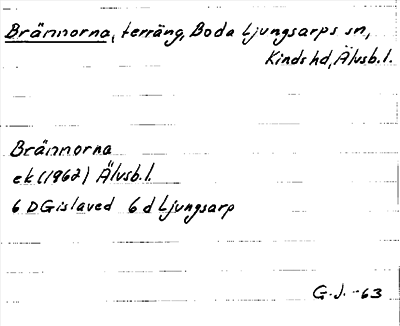 Brännorna, terräng, Boda Ljungsarps sn,
Kinds hd, Älvsb.l.
Brännorna
ek (1962) Älvsb.l.
6 D Gislaved 6 d Ljungsarp
G.J. -63